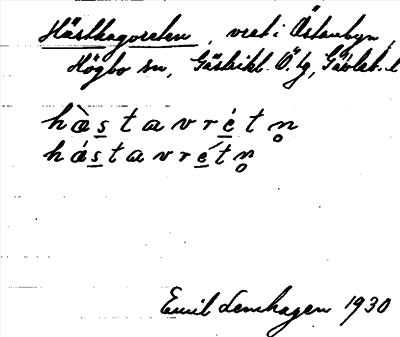 Hästhagvreten, vret i Östanbyn,
Högbo sn, Gästrikl. Ö. tg, Gävleb. l
hàstavrétn̥
hástavrétn̥
Emil Lenhagen 1930